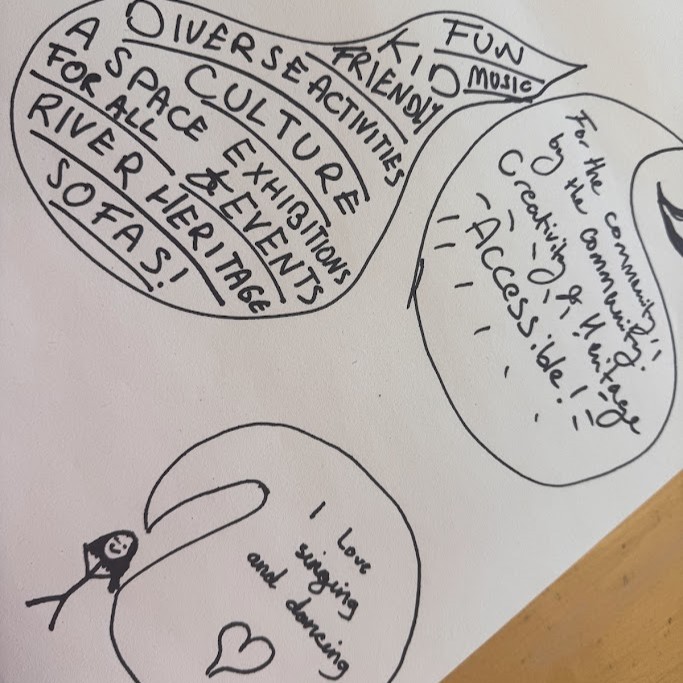 FUN
MUSIC
KID
FRIENDLY
DIVERSE ACTIVITIES
CULTURE
A SPACE EXHIBITIONS
FOR ALL & EVENTS
RIVER HERITAGE
SOFAS!
For the community,
by the community.
Creativity & Heritage
Accessible!
I Love
singing
and dancing